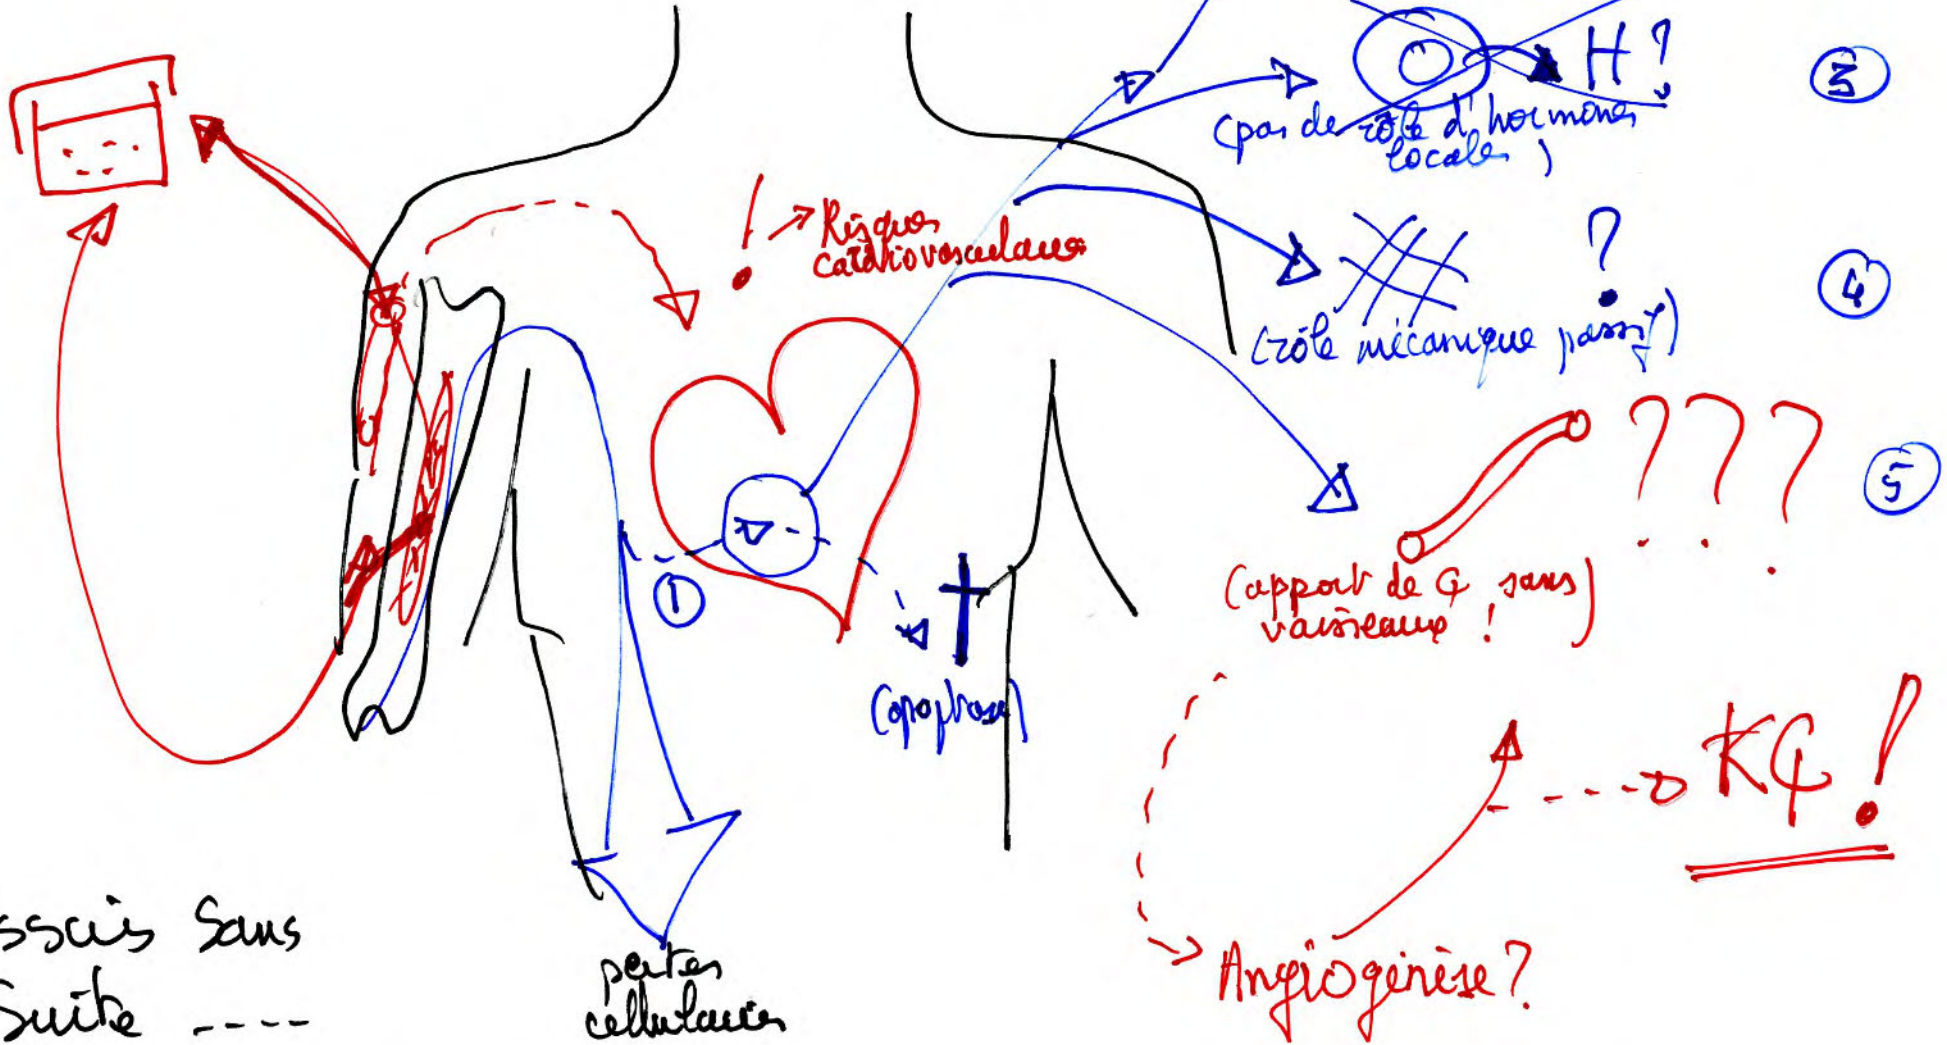 H ?
③
(pas de rôle d'hormones
locales)
! → Risques
cardiovasculaires
?
④
(rôle mécanique passif)
? ? ?
⑤
①
(apport de ₵ sans
vaisseaux !)
(apoptose)
K₵ !
Angiogénèse ?
ssais Sans
Suite ----
pertes
cellulaires